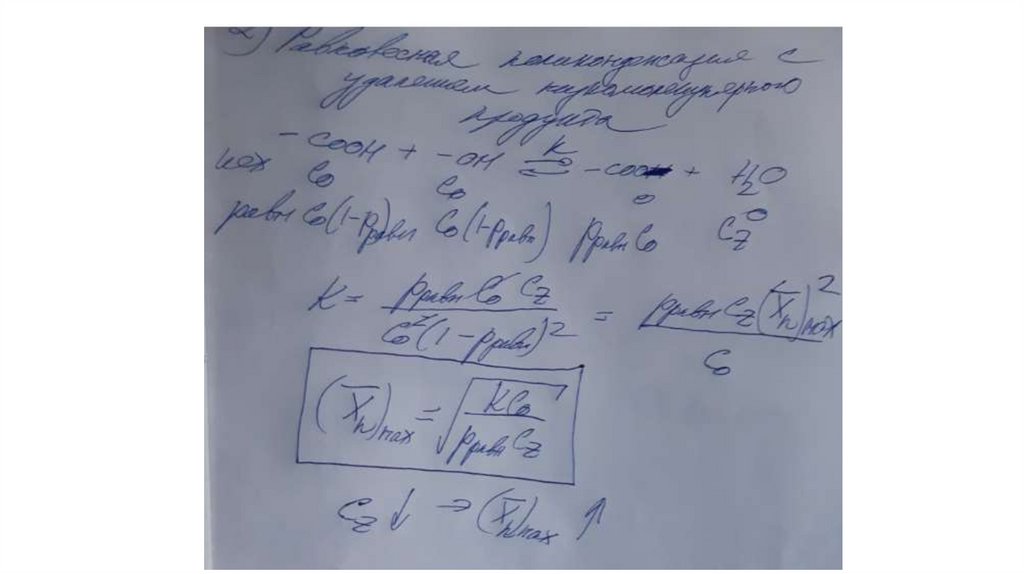 2) Равновесная поликонденсация с
удалением низкомолекулярного
продукта
-COOH + -OH ⇌ -COO- + H₂O
K
исх C₀ C₀ 0 0
равн C₀(1-pравн) C₀(1-pравн) pравн C₀ C_z
K = pравн C₀ C_z / C₀²(1-pравн)² = pравн C_z (X̄n)²max / C₀
(X̄n)max = √(K C₀ / pравн C_z)
C_z ↓ → (X̄n)max ↑